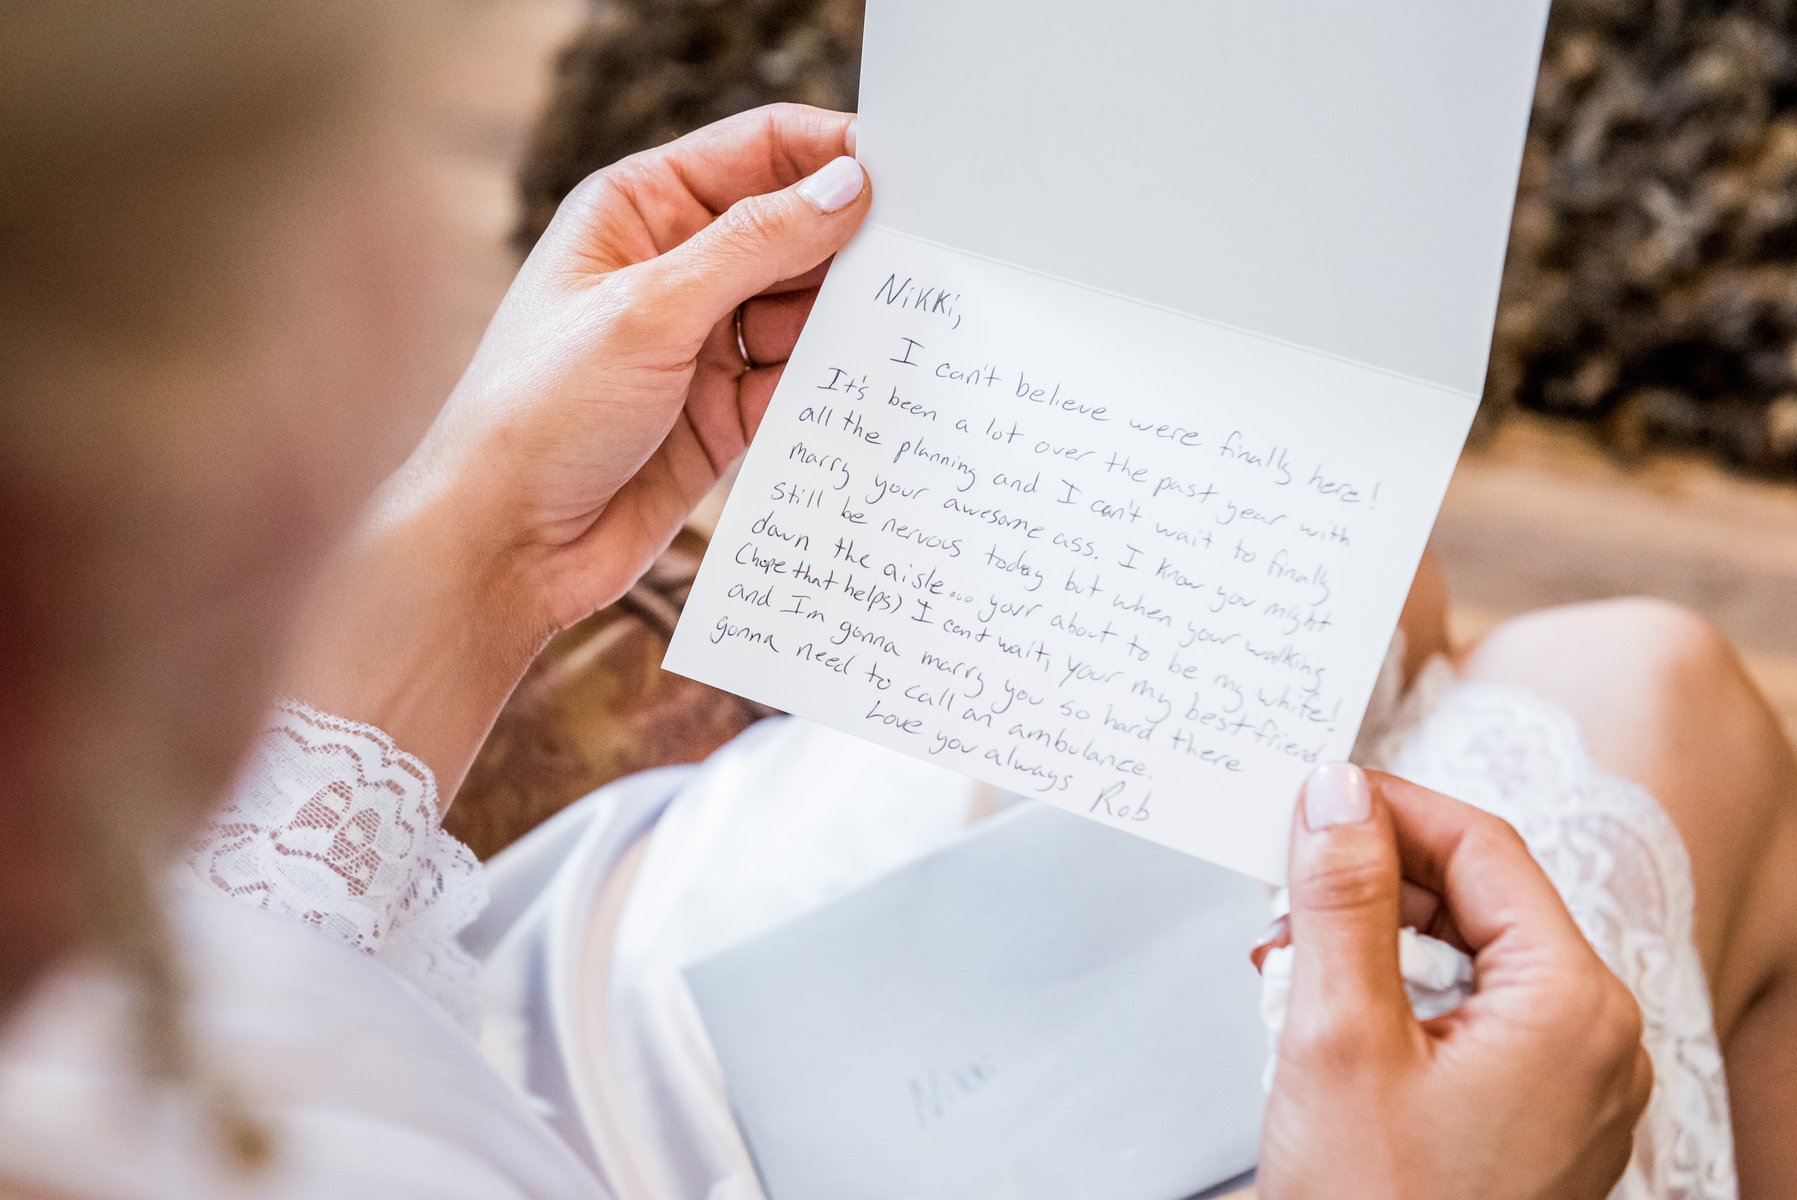 Nikki,
I can't believe were finally here!
It's been a lot over the past year with
all the planning and I can't wait to finally
marry your awesome ass. I know you might
still be nervous today but when your walking
down the aisle... your about to be my white!
(hope that helps) I cant wait, your my best friend
and I'm gonna marry you so hard there
gonna need to call an ambulance.
Love you always Rob
Nikki